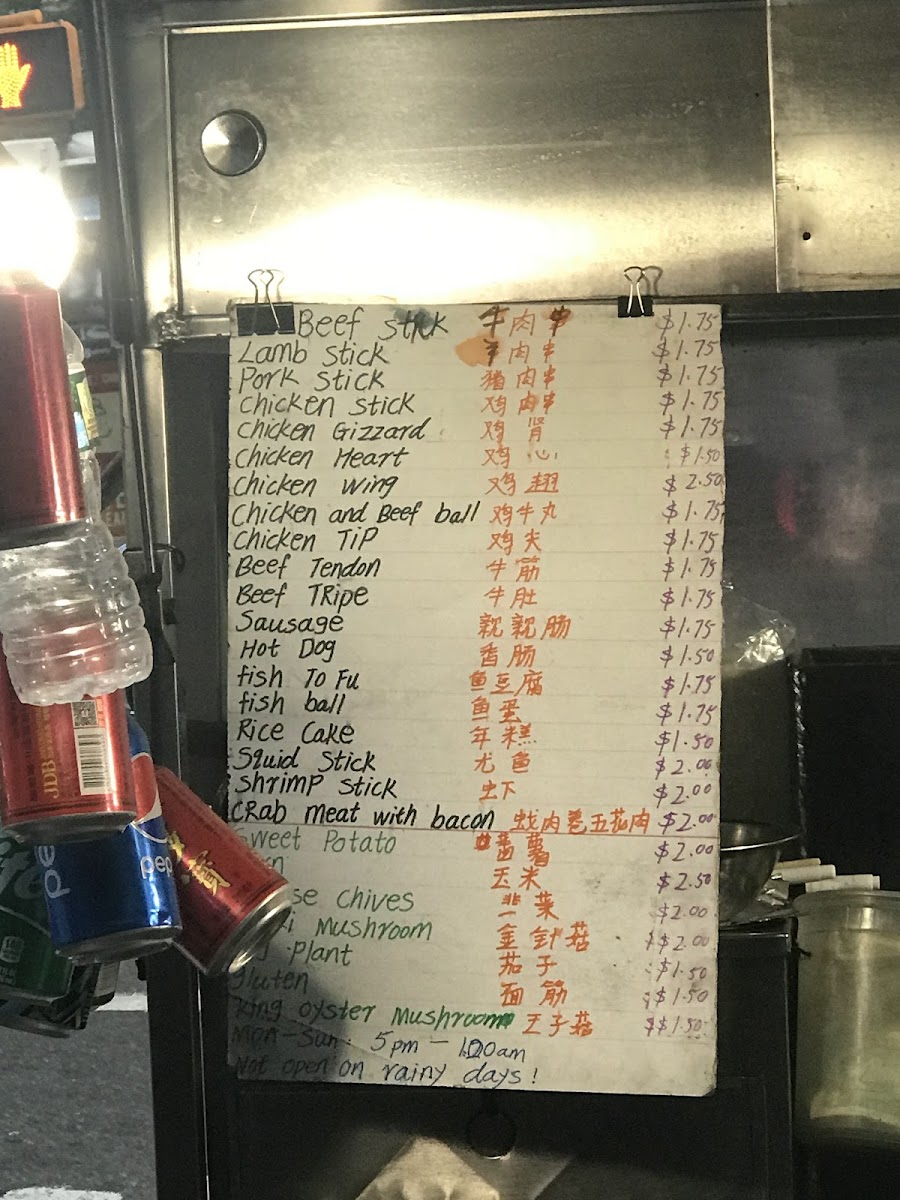 Beef stick 牛肉串 $1.75
Lamb stick 羊肉串 $1.75
Pork stick 猪肉串 $1.75
Chicken stick 鸡肉串 $1.75
Chicken Gizzard 鸡肾 $1.75
Chicken Heart 鸡心 $1.50
Chicken wing 鸡翅 $2.50
Chicken and Beef ball 鸡牛丸 $1.75
Chicken TiP 鸡尖 $1.75
Beef Tendon 牛筋 $1.75
Beef TRipe 牛肚 $1.75
Sausage 親親肠 $1.75
Hot Dog 香肠 $1.50
fish To Fu 鱼豆腐 $1.75
fish ball 鱼蛋 $1.75
Rice Cake 年糕 $1.50
Squid Stick 尤鱼 $2.00
Shrimp Stick 虾 $2.00
CRab meat with bacon 肉卷五花肉 $2.00
Sweet Potato 蕃薯 $2.00
玉米 $2.50
Chives 韭菜 $2.00
Mushroom 金針菇 $2.00
Plant 茄子 $1.50
gluten 面筋 $1.50
King oyster Mushroom 王子菇 $1.50
Mon - Sun: 5pm - 1:00am
Not open on rainy days!
JDB
pepsi